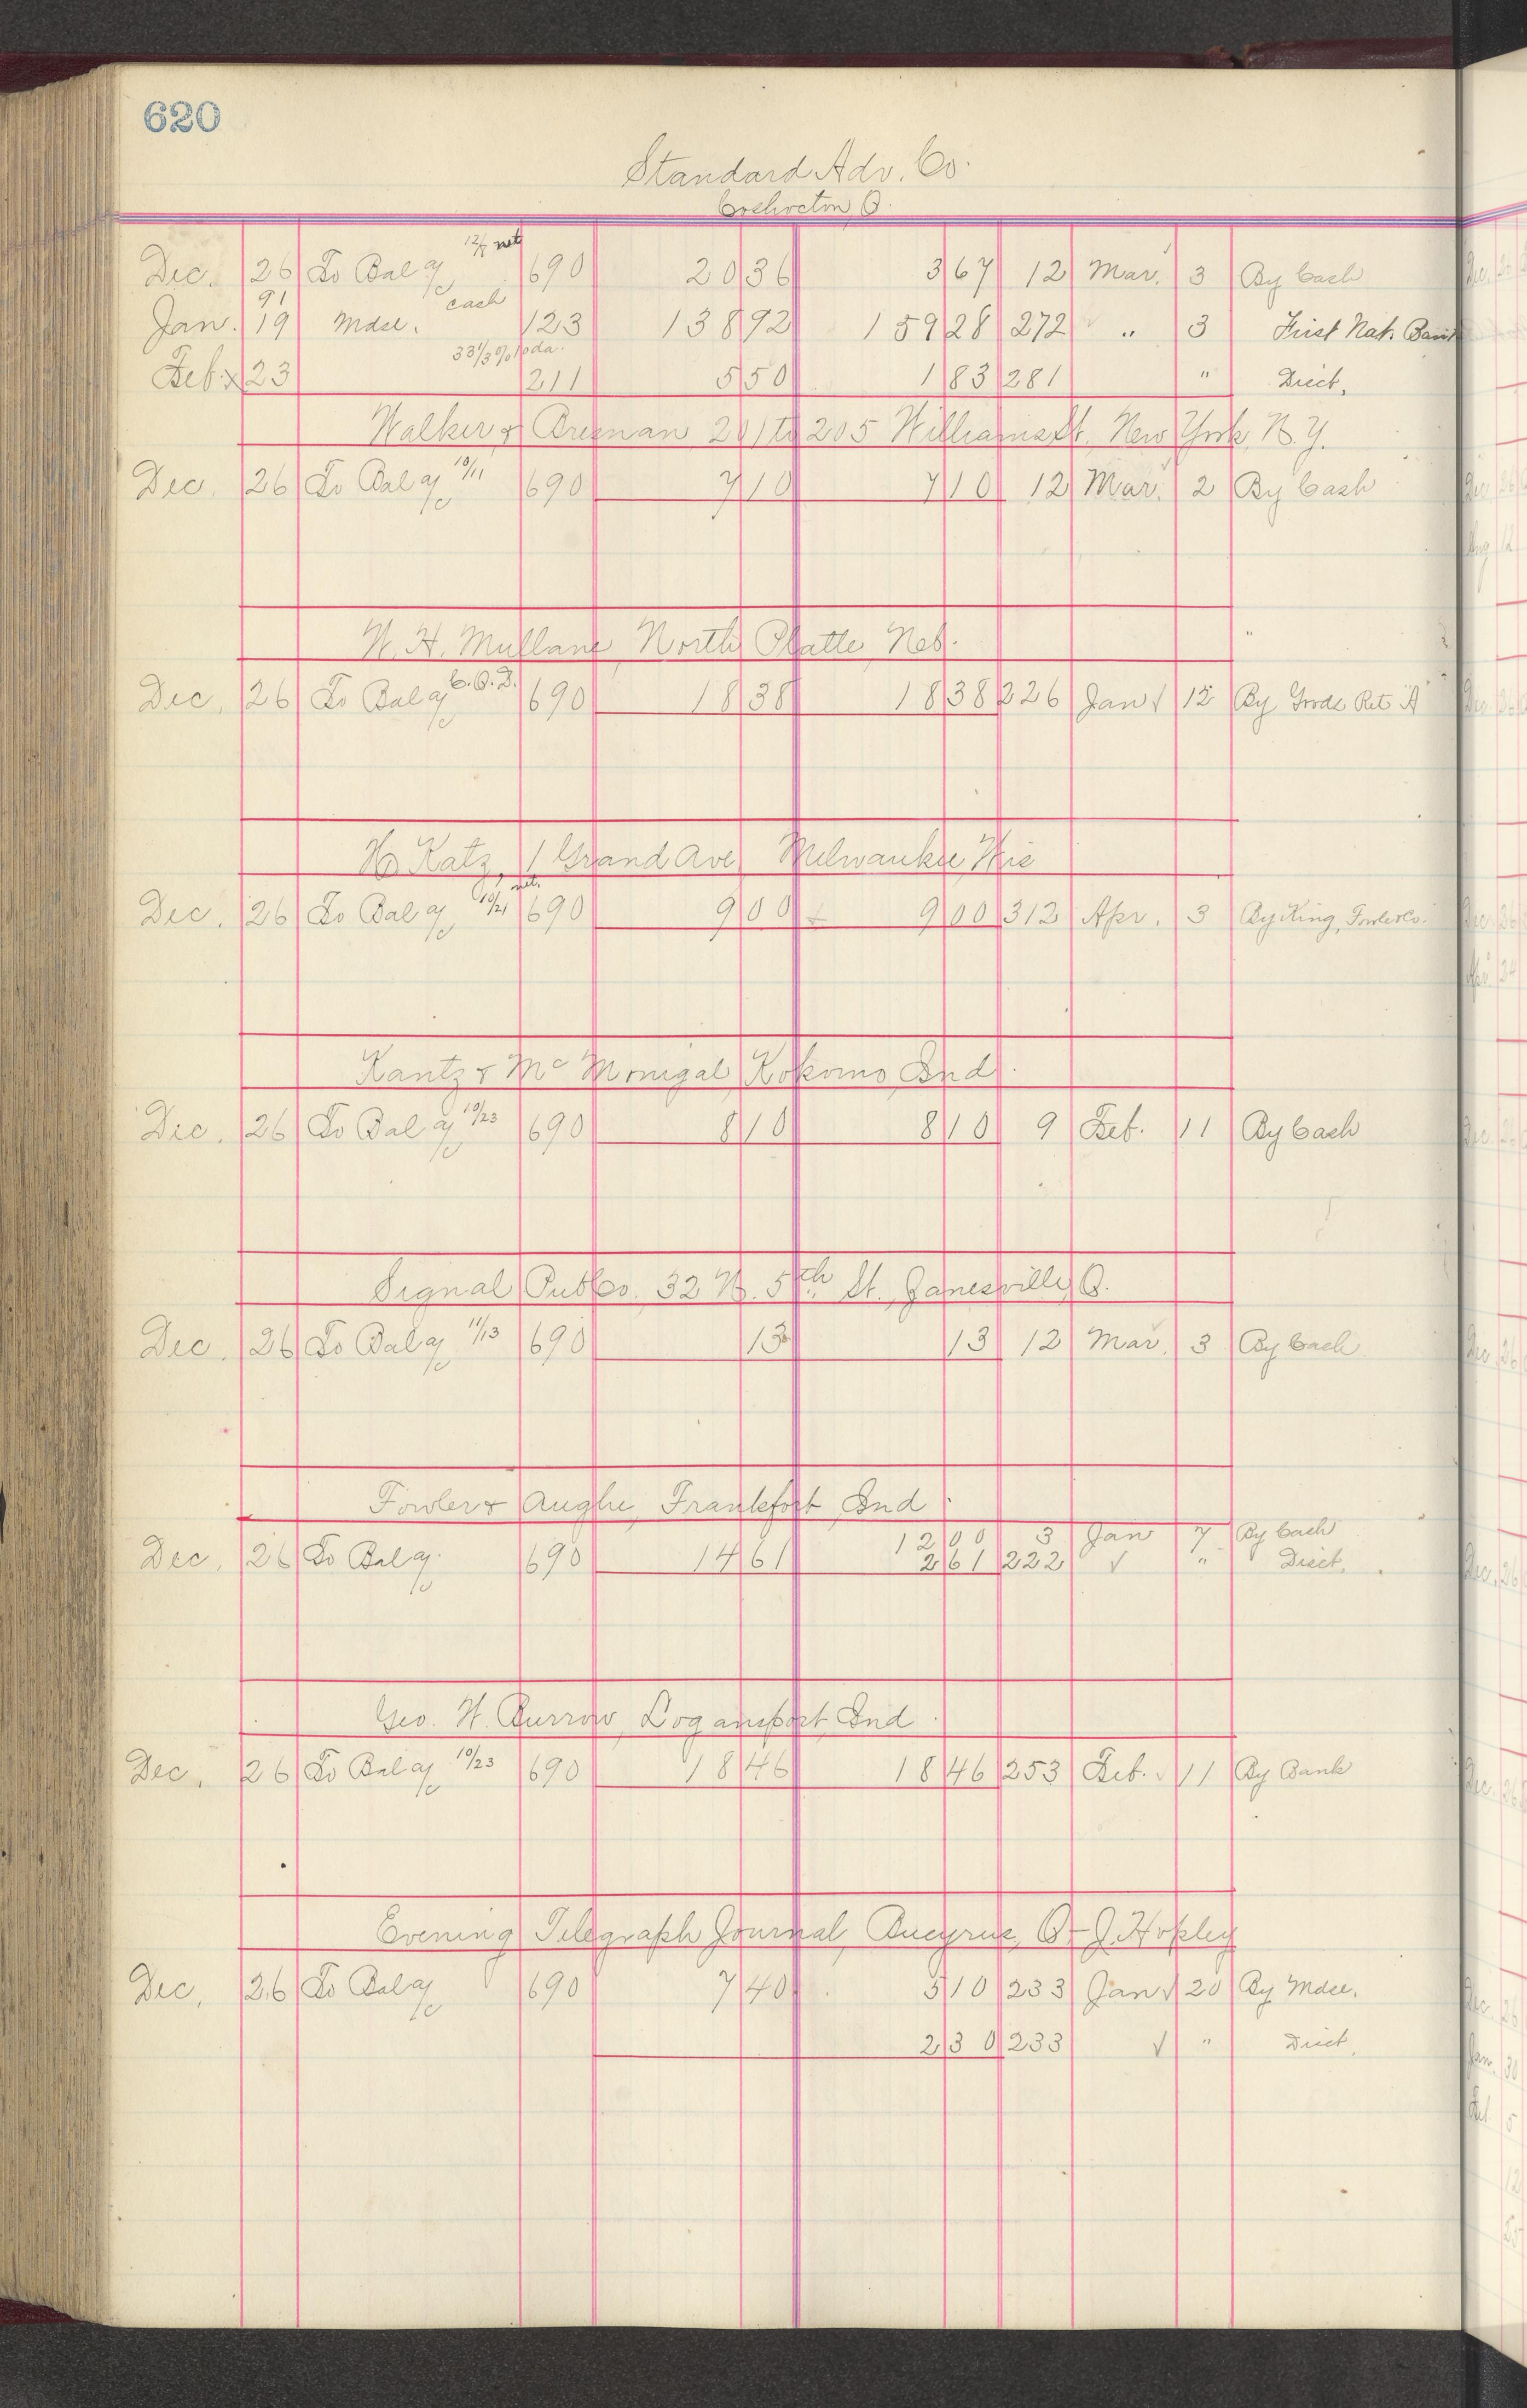 620
Standard Adv. Co.
Coshocton, O.
12/8 net
Dec. 26 To Bal a/c 690 20 36 3 67 12 Mar. 3 By Cash
91 cash
Jan. 19 Mdse. 123 138 92 159 28 272 " 3 First Nat. Bank
33 1/3 % 10 da.
Feb. x 23 211 5 50 1 83 281 " Disct.
Walker & Bresnan, 201 to 205 Williams St., New York, N.Y.
Dec. 26 To Bal a/c 10/11 690 7 10 7 10 12 Mar. 2 By Cash
W. H. Mullane, North Platte, Neb.
Dec. 26 To Bal a/c C.O.D. 690 18 38 18 38 226 Jan √ 12 By Goods Ret "A"
H Katz, 1 Grand Ave, Milwaukee, Wis
net.
Dec. 26 To Bal a/c 10/21 690 9 00 9 00 312 Apr. 3 By King, Fowler Co.
Kantz & Mc Monigal, Kokomo, Ind.
Dec. 26 To Bal a/c 10/23 690 8 10 8 10 9 Feb. 11 By Cash
Signal Pub Co. 32 N. 5th St., Zanesville, O.
Dec. 26 To Bal a/c 11/13 690 13 13 12 Mar. 3 By Cash
Fowler & Aughe, Frankfort, Ind.
12 00 3 Jan 7 By Cash
Dec. 26 To Bal a/c 690 14 61 2 61 222 √ " Disct.
Geo. W. Burrow, Logansport, Ind.
Dec. 26 To Bal a/c 10/23 690 18 46 18 46 253 Feb. √ 11 By Bank
Evening Telegraph Journal, Bucyrus, O - J. Hopley
Dec. 26 To Bal a/c 690 7 40 5 10 233 Jan √ 20 By Mdse.
2 30 233 √ " Disct.